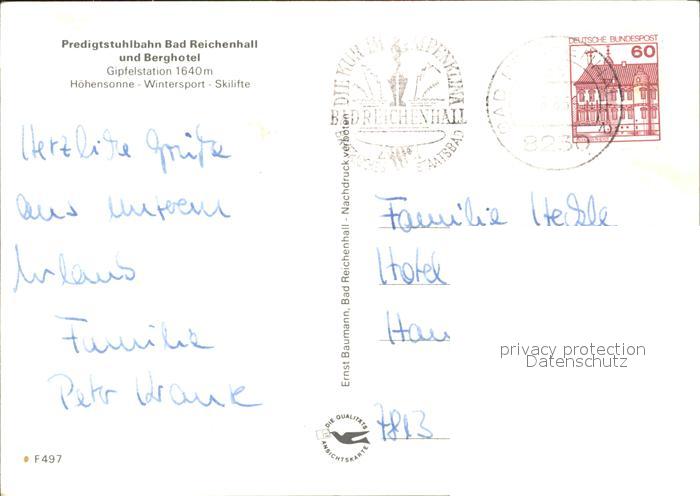 Predigtstuhlbahn Bad Reichenhall
und Berghotel
Gipfelstation 1640 m
Höhensonne - Wintersport - Skilifte
Herzliche Grüße
aus unserem
Urlaub
Familie
Peter Krause
F497
Ernst Baumann, Bad Reichenhall - Nachdruck verboten
DIE QUALITÄTS
ANSICHTSKARTE
DIE KUR IM ALPENKLIMA
BAD REICHENHALL
STAATSBAD
8230
DEUTSCHE BUNDESPOST
60
Familie
Hotel
7813
privacy protection
Datenschutz